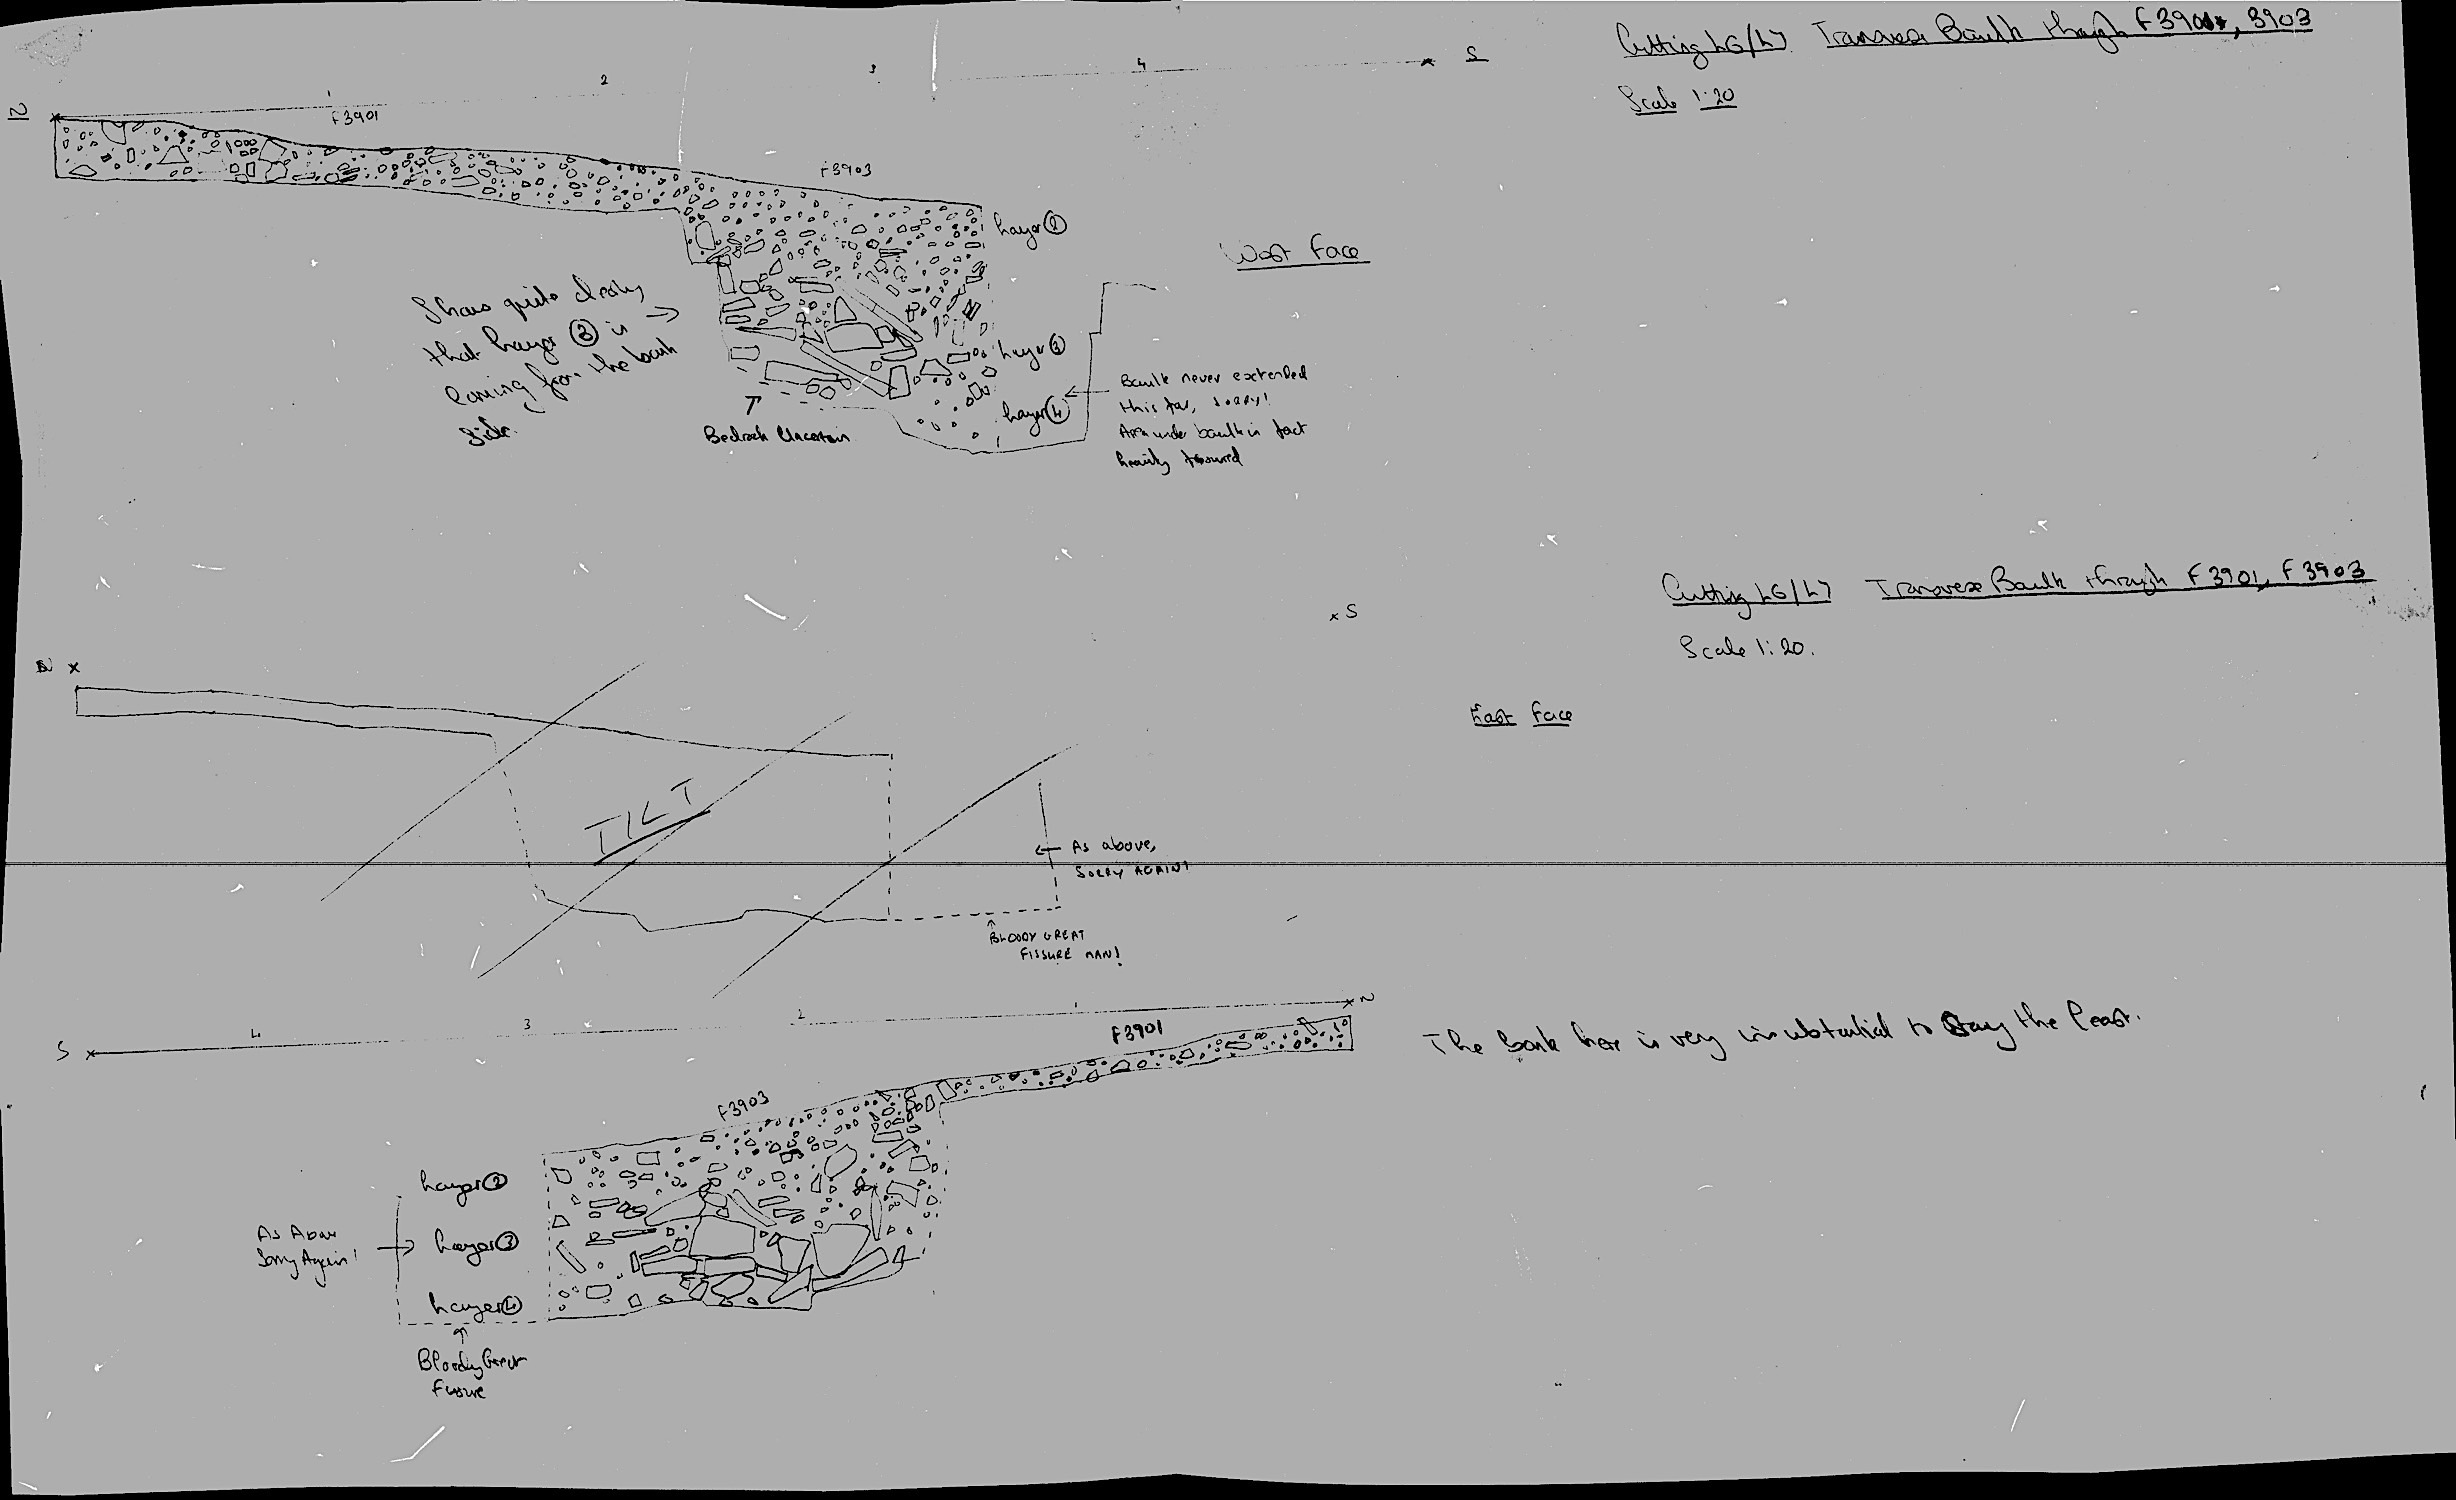 Cutting L6/L7 Transverse Baulk through F3901, 3903
Scale 1:20
N
1
2
3
4
S
F3901
F3903
Layer 2
West Face
Shows quite clearly
that Layer 3 is
coming from the bank
side.
Layer 3
Layer 4
Bedrock Uncertain
Baulk never extended
this far, SORRY!
Area under baulk is in fact
heavily fissured
Cutting L6/L7 Transverse Baulk through F3901, F3903
Scale 1:20.
East Face
N
S
TILT
As above,
SORRY AGAIN!
BLOODY GREAT
FISSURE MAN!
S
4
3
2
1
N
F3901
F3903
The bank here is very insubstantial to say the least.
Layer 2
Layer 3
Layer 4
As Above
Sorry Again!
Bloody Great
Fissure